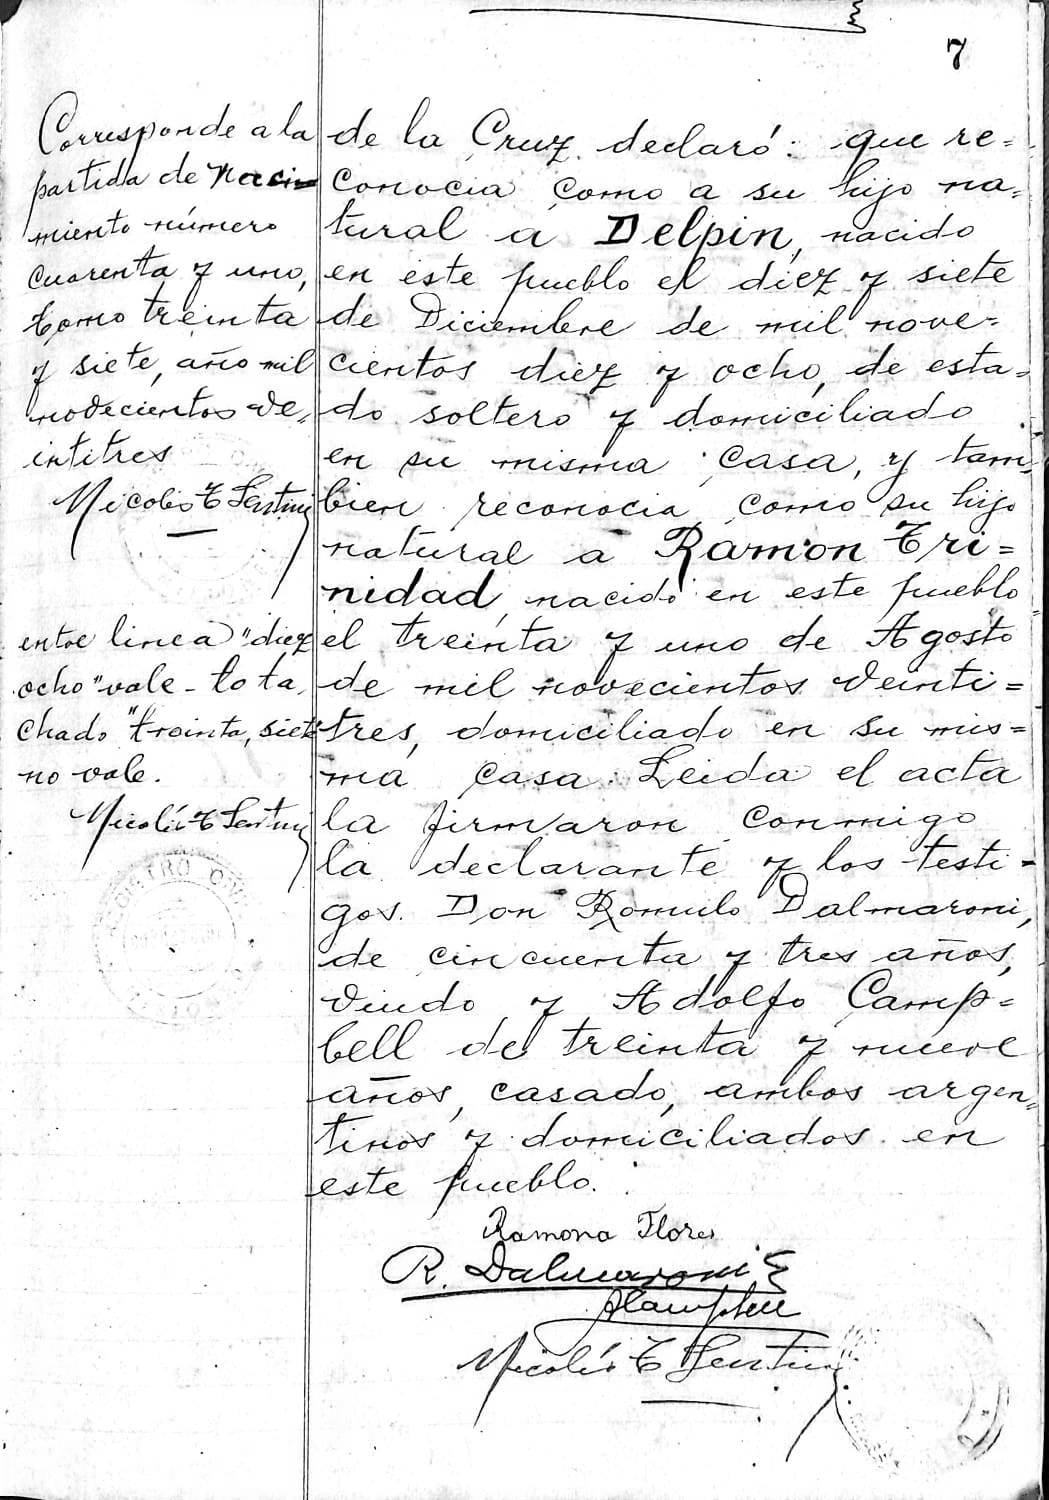 7
Corresponde a la
partida de naci=
miento número
cuarenta y uno,
tomo treinta
y siete, año mil
novecientos ve,,
intitres
Nicolás T
entre linea "diez
ocho" vale - lo ta,
chado "treinta, siete
no vale.
Nicolás T
de la Cruz declaró: que re=
conocia como a su hijo na=
tural a Delpin, nacido
en este pueblo el diez y siete
de Diciembre de mil nove=
cientos diez y ocho, de esta=
do soltero y domiciliado
en su misma casa, y tam,,
bien reconocia como su hijo
natural a Ramon Tri=
nidad, nacido en este pueblo
el treinta y uno de Agosto
de mil novecientos veinti=
tres, domiciliado en su mis=
ma casa. Leida el acta
la firmaron conmigo
la declarante y los testi=
gos. Don Romulo Dalmaroni,
de cincuenta y tres años,
viudo y Adolfo Camp=
bell de treinta y nueve
años, casado, ambos argen,,
tinos y domiciliados en
este pueblo.
Ramona Flores
R. Dalmaroni
ACampbell
Nicolás T
REGISTRO CIVIL